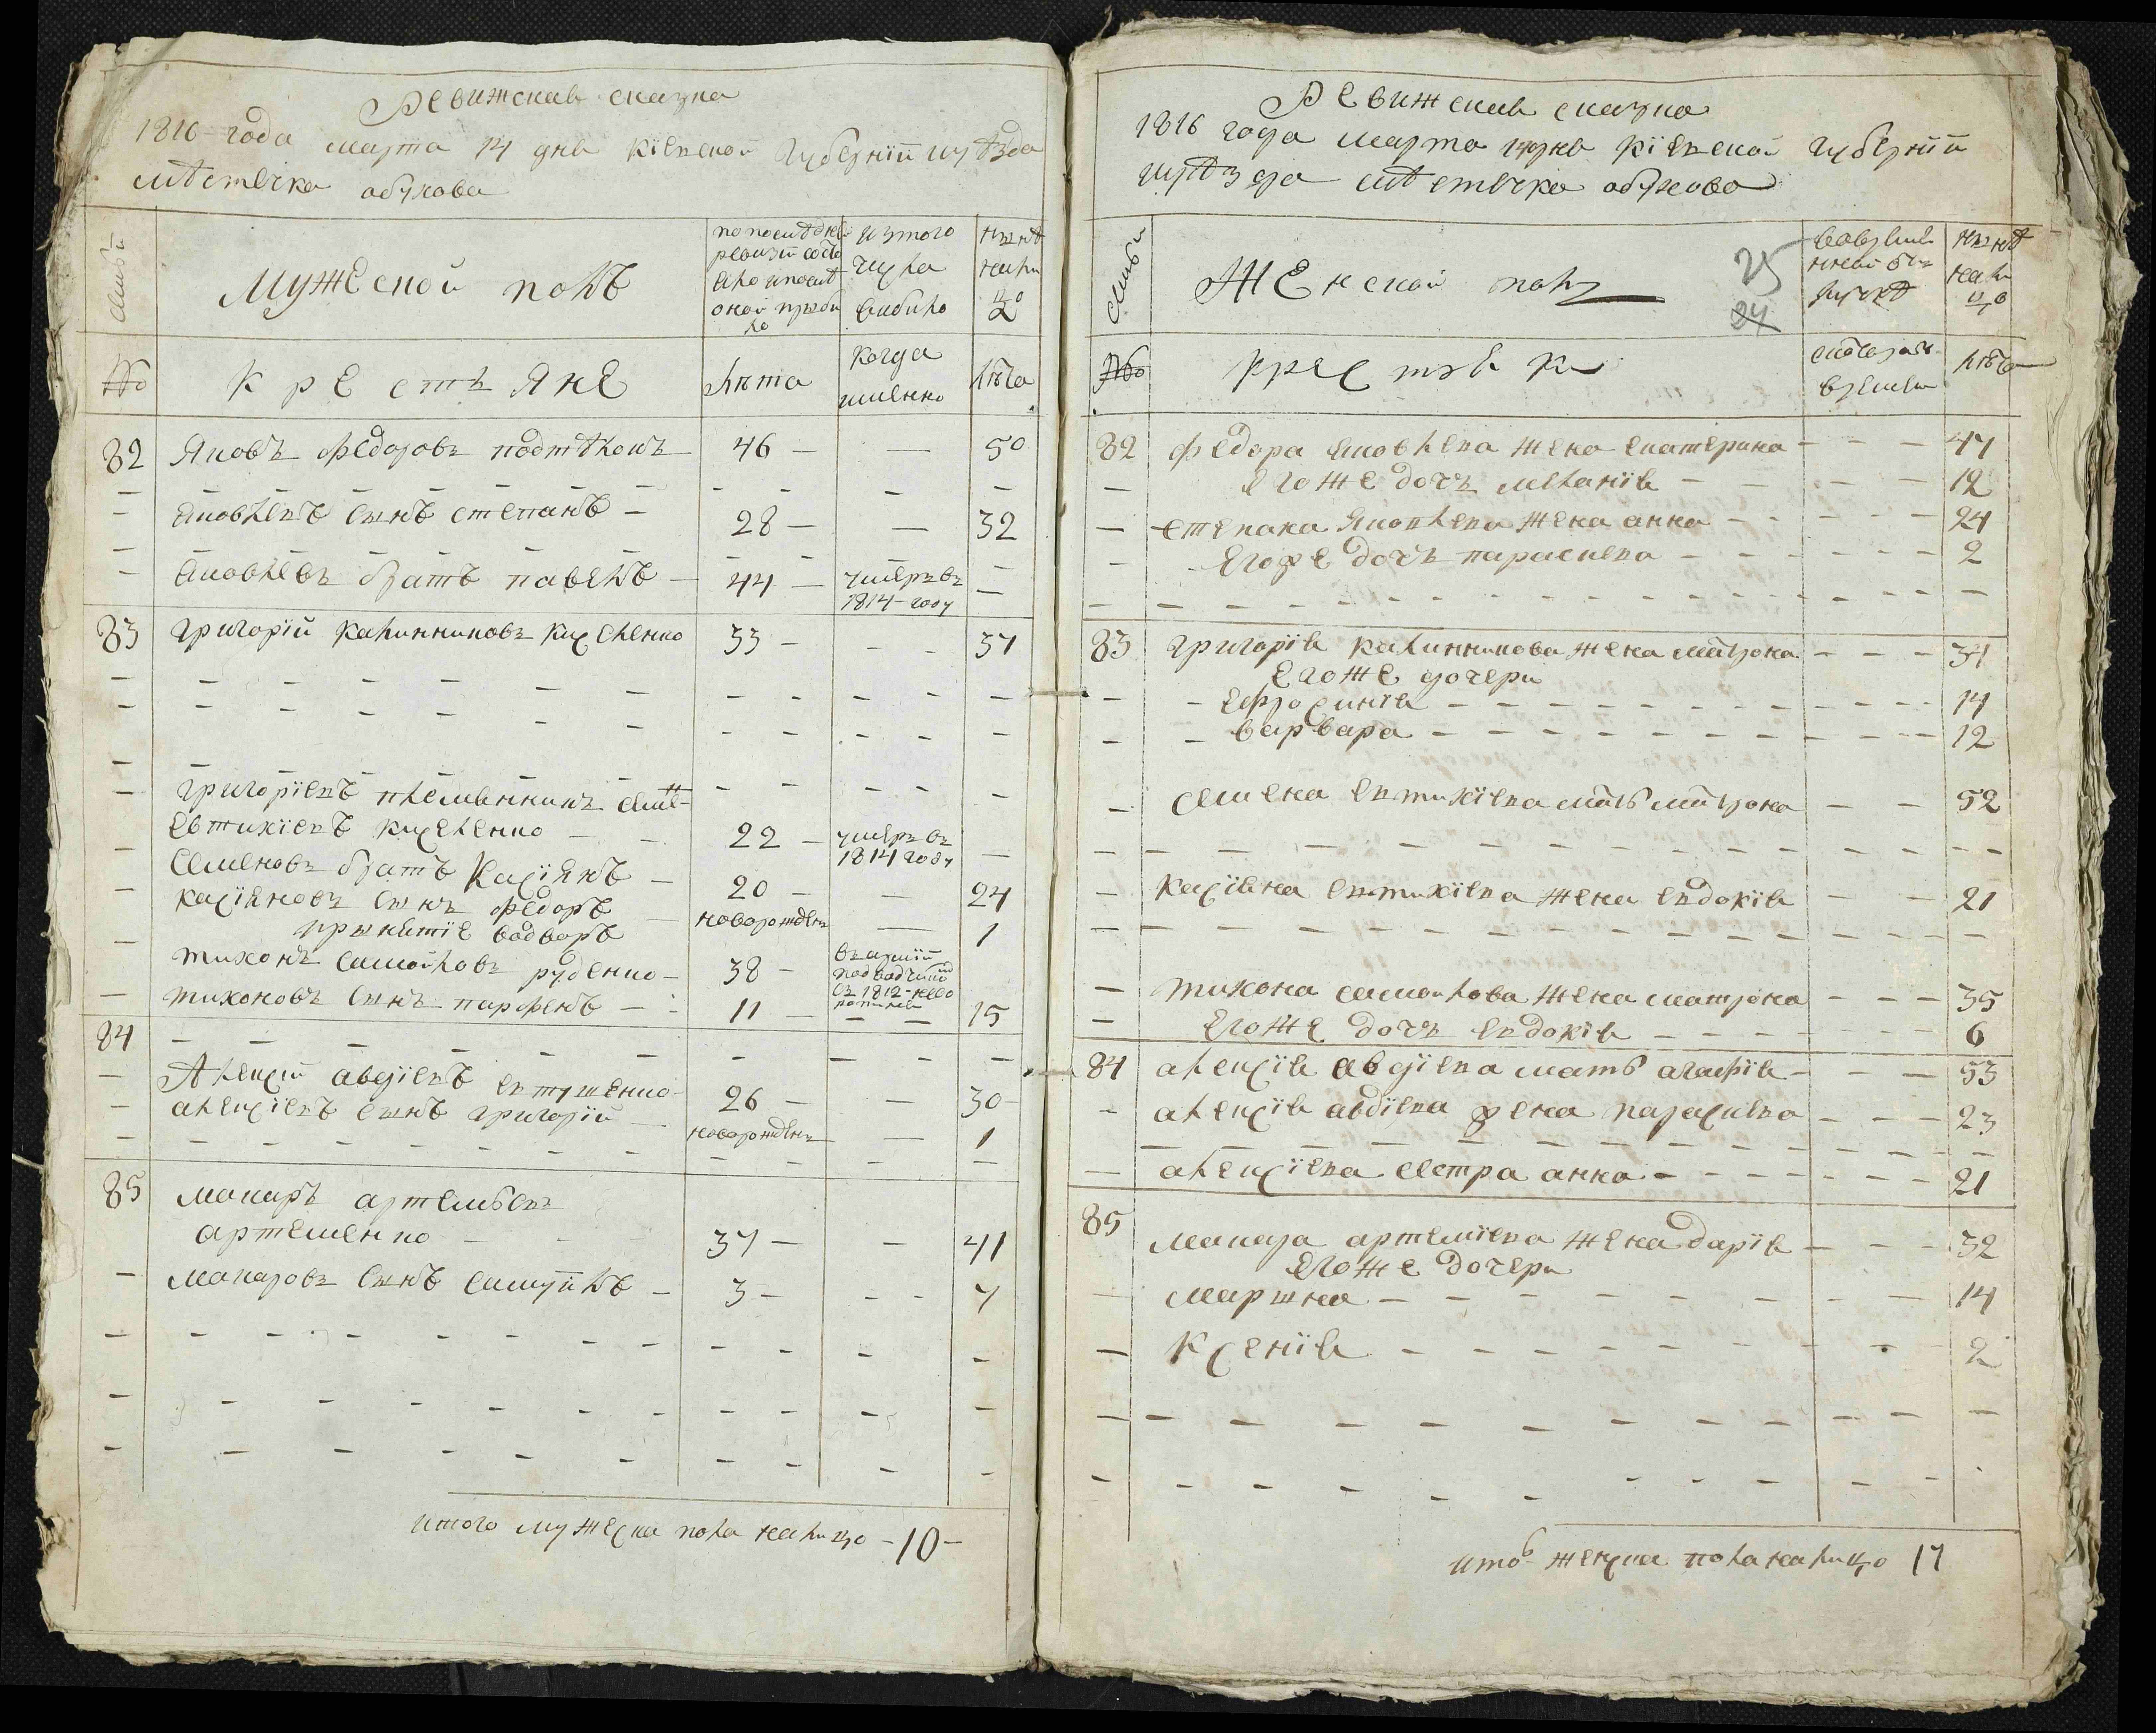 Ревижская сказка
1816 года марта 14 дня Кіевской Губерніи и уѣзда
мѣстечка обухова
Семьи
Мужеской полъ
по последней ревизіи состояло и после оной прибыло
изъ того числа выбыло
нынѣ на лицо
№
крестьяне
лѣта
когда именно
лѣта
82 Яковъ федоровъ подтѣлокъ 46 — — 50
Яковлевъ сынъ степанъ — 28 — — 32
Яковлевъ братъ павелъ — 44 — умеръ въ 1814 году —
83 григорій калинниковъ киселенко 33 — - - 37
григоріевъ племянникъ семенъ
евтихіевъ киселенко — — 22 — умеръ въ 1814 году —
Семеновъ братъ Касіянъ — 20 — — 24
касіяновъ сынъ федоръ — новорожденъ — 1
принятіе во дворъ
тихонъ самойловъ руденко — 38 —
въ арміи
съ 1812-го
тихоновъ сынъ парфенъ — 11 — — 15
84
Алексій авдіевъ евтушенко 26 — — 30
алексіевъ сынъ григорій — новорожденъ — 1
85 макаръ артемьевъ
артеменко — 37 — — 41
макаровъ сынъ самуйлъ — 3 — - - 7
итого мужеска пола на лицо — 10 —
Ревижская сказка
1816 года марта 14 дня Кіевской губерніи
и уѣзда мѣстечка обухова
семьи
Женской полъ
25
24
во временной отлучкѣ
нынѣ на лицо
№
крестьянки
с котораго времени
лѣта
82 федора яковлева жена екатерина — — — 47
его же дочь меланія — — — 12
степана Яковлева жена анна — — — 24
его же дочь параскева — — — 2
83 григорія калинникова жена матрона — — — 31
его же дочери
ефросинія — — — 14
варвара — — — 12
семена евтихіева мать матрона — — 52
касіяна евтихіева жена евдокія — — 21
тихона самойлова жена матрона — — — 35
его же дочь евдокія — — — 6
84 алексія авдіева мать агафія — — — 53
алексія авдіева жена параскева — — — 23
алексіева сестра анна — — — 21
85
макара артеміева жена дарія — — — 32
его же дочери
маріяна — — — 14
ксенія — — — 2
итого женска пола на лицо 17